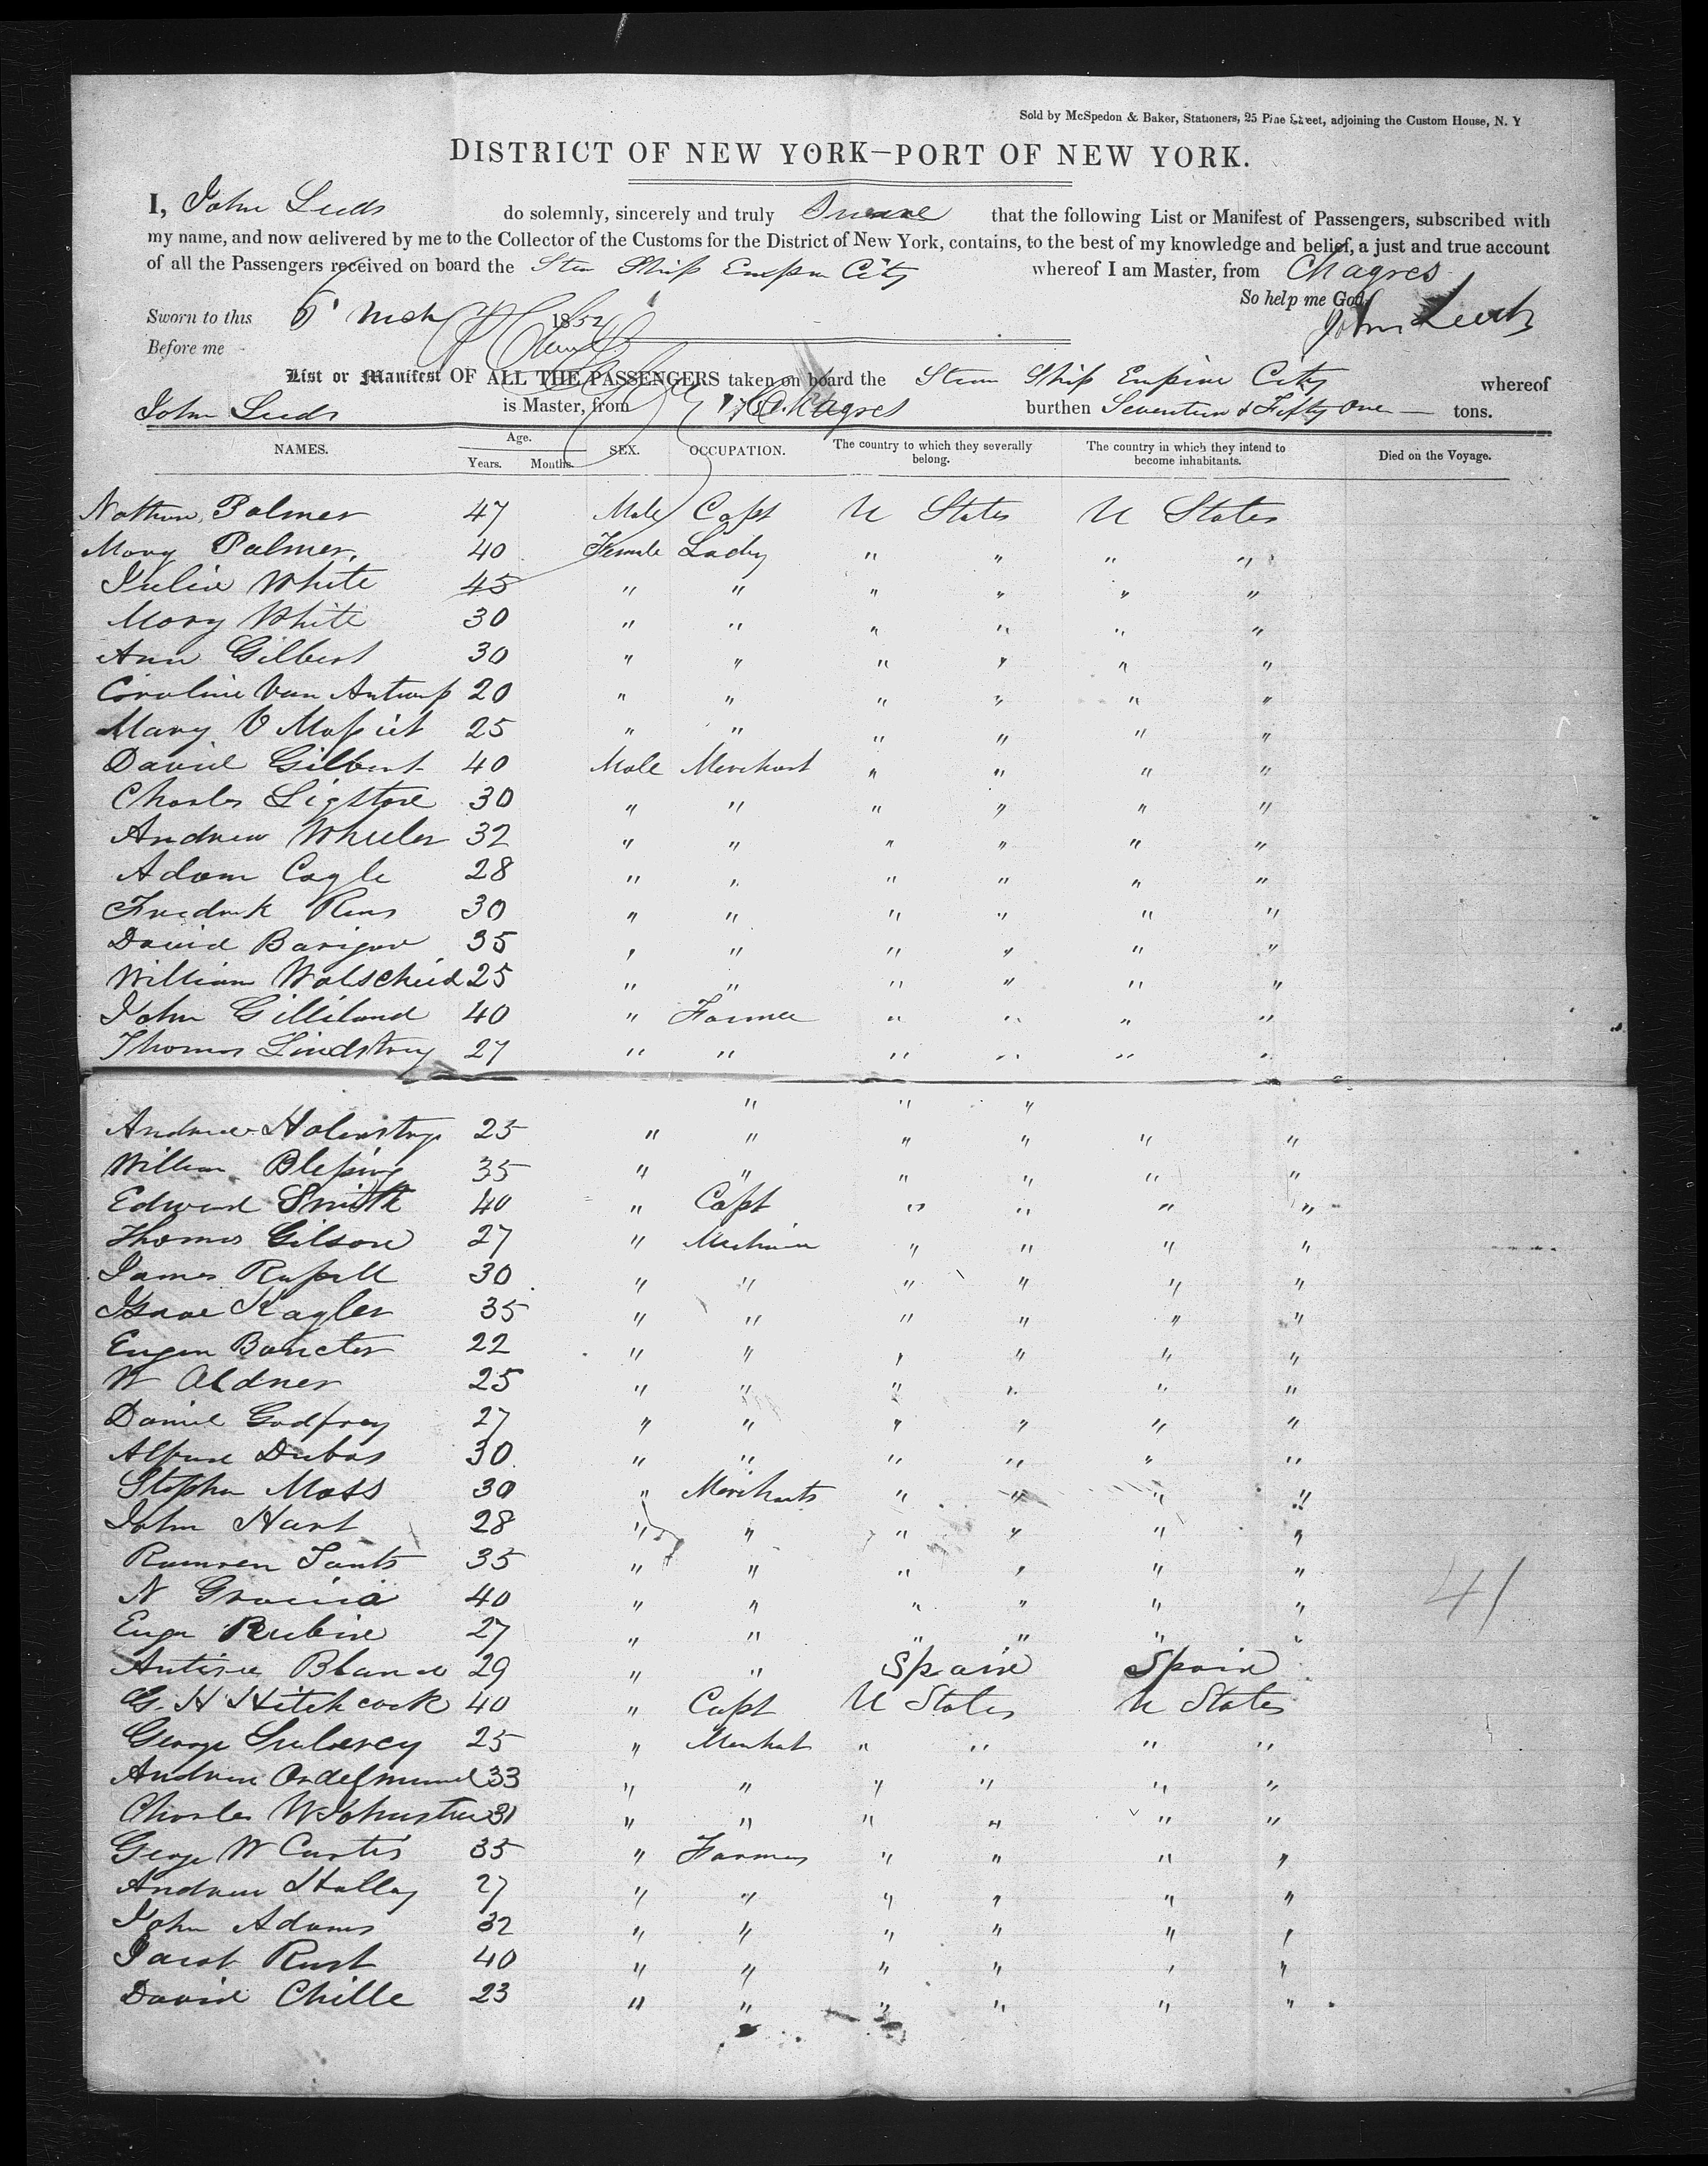 Sold by McSpedon & Baker, Stationers, 25 Pine Street, adjoining the Custom House, N. Y
DISTRICT OF NEW YORK—PORT OF NEW YORK.
I, John Leeds do solemnly, sincerely and truly Sweare that the following List or Manifest of Passengers, subscribed with
my name, and now delivered by me to the Collector of the Customs for the District of New York, contains, to the best of my knowledge and belief, a just and true account
of all the Passengers received on board the Stm Ship Empire City whereof I am Master, from Chagres
So help me God.
Sworn to this 6 Mch 1852 John Leeds
Before me
List or Manifest OF ALL THE PASSENGERS taken on board the Steam Ship Empire City whereof
John Leeds is Master, from Chagres burthen Seventeen & Fifty One — tons.
NAMES. Age. Years. Months. SEX. OCCUPATION. The country to which they severally belong. The country in which they intend to become inhabitants. Died on the Voyage.
Nathan Palmer 47 Male Capt U States U States
Mary Palmer 40 Female Lady " " " "
Julia White 45 " " " " " "
Mary White 30 " " " " " "
Ann Gilbert 30 " " " " " "
Caroline Van Antwerp 20 " " " " " "
Mary V 25 " " " " " "
David Gilbert 40 Male Merchant " " " "
Charles 30 " " " " " "
Andrew Wheeler 32 " " " " " "
Adam Cagle 28 " " " " " "
Fredrick 30 " " " " " "
David 35 " " " " " "
William Walscheid 25 " " " " " "
John Gilliland 40 " Farmer " " " "
Thomas 27 " " " " " "
" " "
Andrew 25 " " " " " "
William Blessing 35 " " " " " "
Edward Smith 40 " Capt " " " "
Thomas Gilson 27 " " " " "
James Russell 30 " " " " " "
Isaac Kagler 35 " " " " " "
22 " " " " " "
W Aldner 25 " " " " " "
Daniel Godfrey 27 " " " " " "
Dubas 30 " " " " " "
Stephen Moss 30 " Merchants " " " "
John Hart 28 " " " " " "
35 " " " " " "
N 40 " " " " " "
27 " " " " " "
29 " " Spain Spain
G. H Hitchcock 40 " Capt U States U States
George 25 " Merchant " " " "
Andrew 33 " " " " " "
Charles W Johnston 31 " " " " " "
George W Curtis 35 " Farmer " " " "
Andrew Halley 27 " " " " " "
John Adams 32 " " " " " "
Jacob Rust 40 " " " " " "
David Chille 23 " " " " " "
41